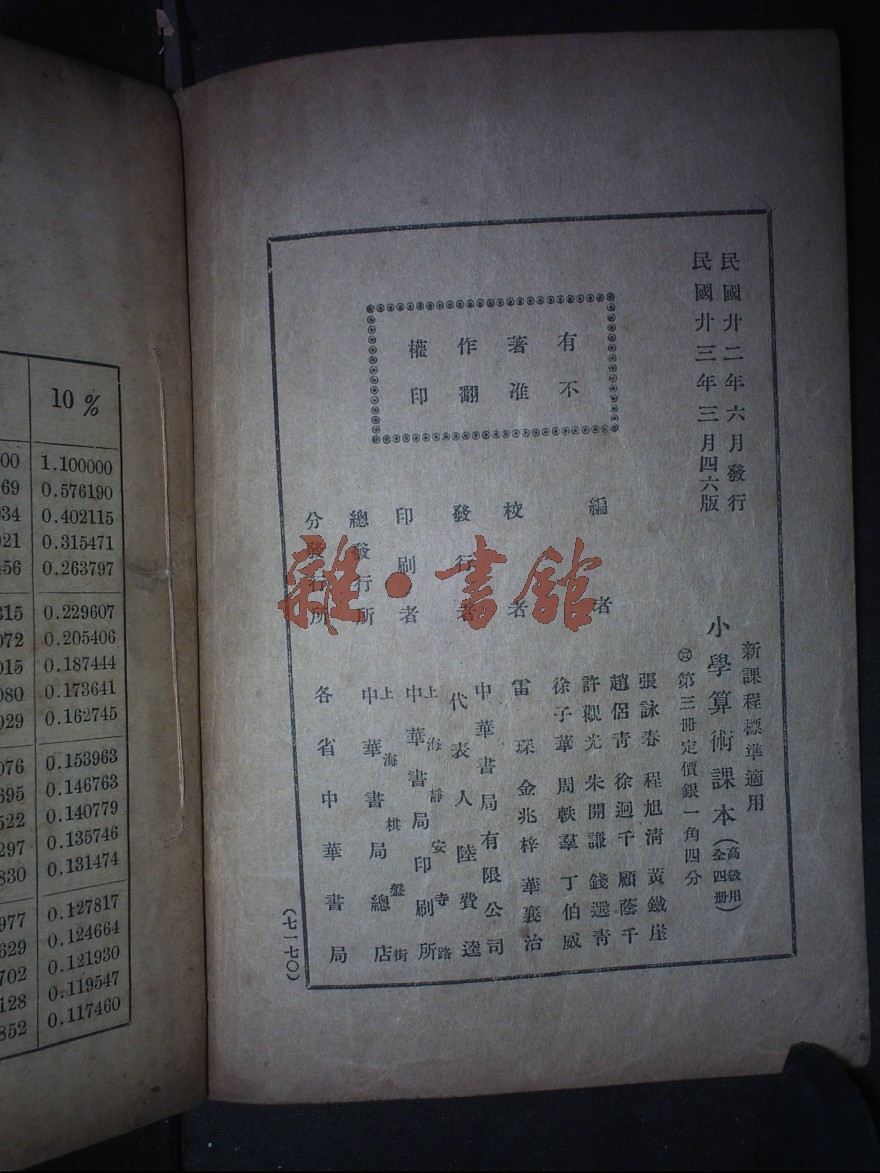 民國廿二年六月發行
民國廿三年三月四六版
新課程標準適用
小學算術課本（高級用全四册）
第三册定價銀一角四分
有著作權
不准翻印
編者
張詠春 程旭清 黃鐵崖
趙侶青 徐迥千 顧蔭千
許觀光 朱開謙 錢選青
徐子華 周軼羣 丁伯威
校者
雷琛 金兆梓 華襄治
發行者
中華書局有限公司
代表人 陸費逵
印刷者
上海靜安寺路
中華書局印刷所
總發行所
上海棋盤街
中華書局總店
分發行所
各省中華書局
（七一七〇）
雜·書館
10 %
00 1.100000
69 0.576190
034 0.402115
021 0.315471
456 0.263797
315 0.229607
072 0.205406
015 0.187444
080 0.173641
029 0.162745
076 0.153963
695 0.146763
522 0.140779
297 0.135746
830 0.131474
977 0.127817
629 0.124664
702 0.121930
128 0.119547
852 0.117460